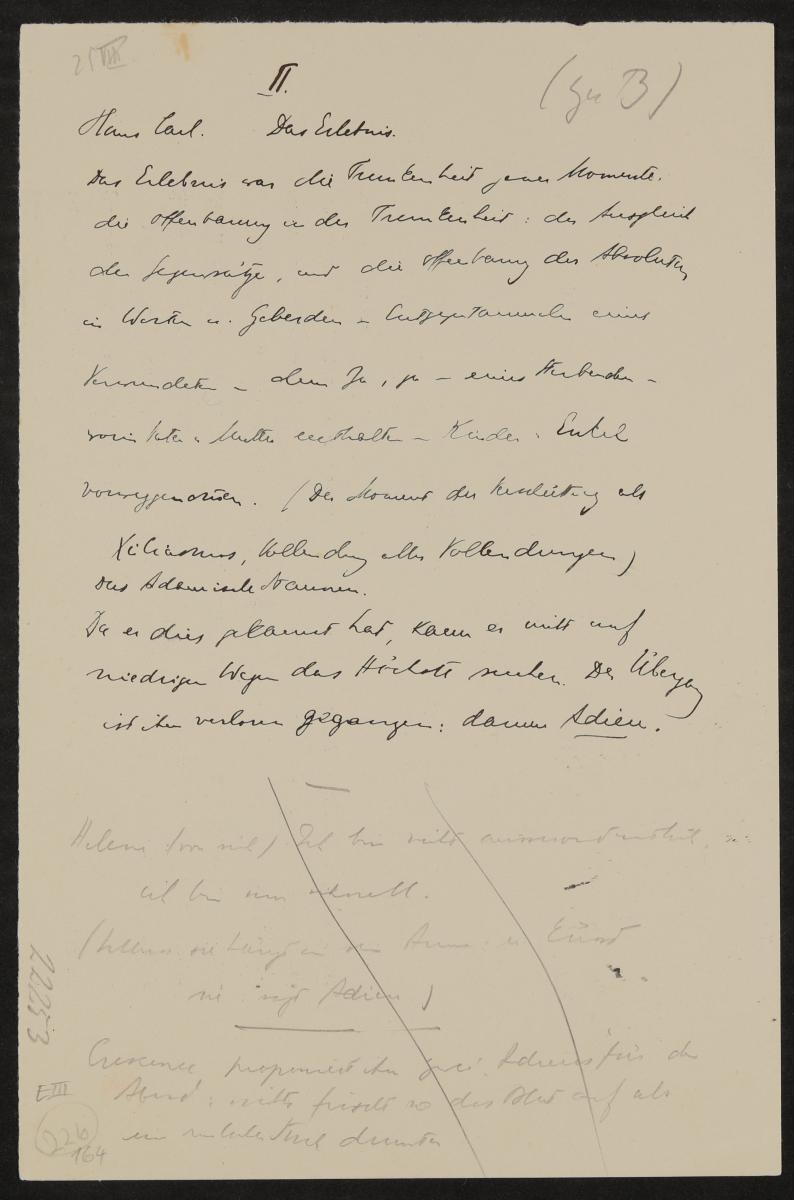 25 VIII
II.
(zu B)
Hans Carl. Das Erlebnis.
Das Erlebnis war die Trunkenheit jener Momente.
die Offenbarung in der Trunkenheit: der Ausgleich
der Gegensätze, und die Offenbarung des Absoluten
in Worten u. Geberden – eines
Verwundeten – dem Ja, ja – eines Sterbenden –
worin Vater u Mutter enthalten – Kinder u Enkel
vorweggenommen. (Der Moment der Verschüttung als
Xiliasmus, Vollendung aller Vollendungen)
Das Adamische Nannen.
Da er dies gekannt hat, kann er nicht auf
niedrigen Wegen das Höchste suchen. Der Übergang
ist ihm verloren gegangen: darum Adieu.
Helene (vor sich) Ich bin nicht
ich bin nur schnell.
(Helene sie hängt in dem Arme: er
sie sagt Adieu)
Crescence proponiert ihm zwei Adieus für den
Abend: nichts frischt so das Blut auf als
ein
22253
E III
226
164